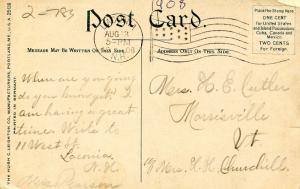 2-
908
Post Card.
AUG 13
5-PM
N.H.
Place the Stamp Here
ONE CENT
for United States
and Island Possessions
Cuba, Canada and
Mexico
TWO CENTS
For Foreign.
MESSAGE MAY BE WRITTEN ON THIS SIDE
ADDRESS ONLY ON THIS SIDE.
THE HUGH C. LEIGHTON CO., MANUFACTURERS, PORTLAND, ME., U.S.A.
When are you going
I
am having a great
time. Write to
11 West St.
Laconia,
N.H.
Mrs. Pearson
Mrs. H. E. Cutler
Morrisville
Vt
℅ Mrs. H. H. Churchill.